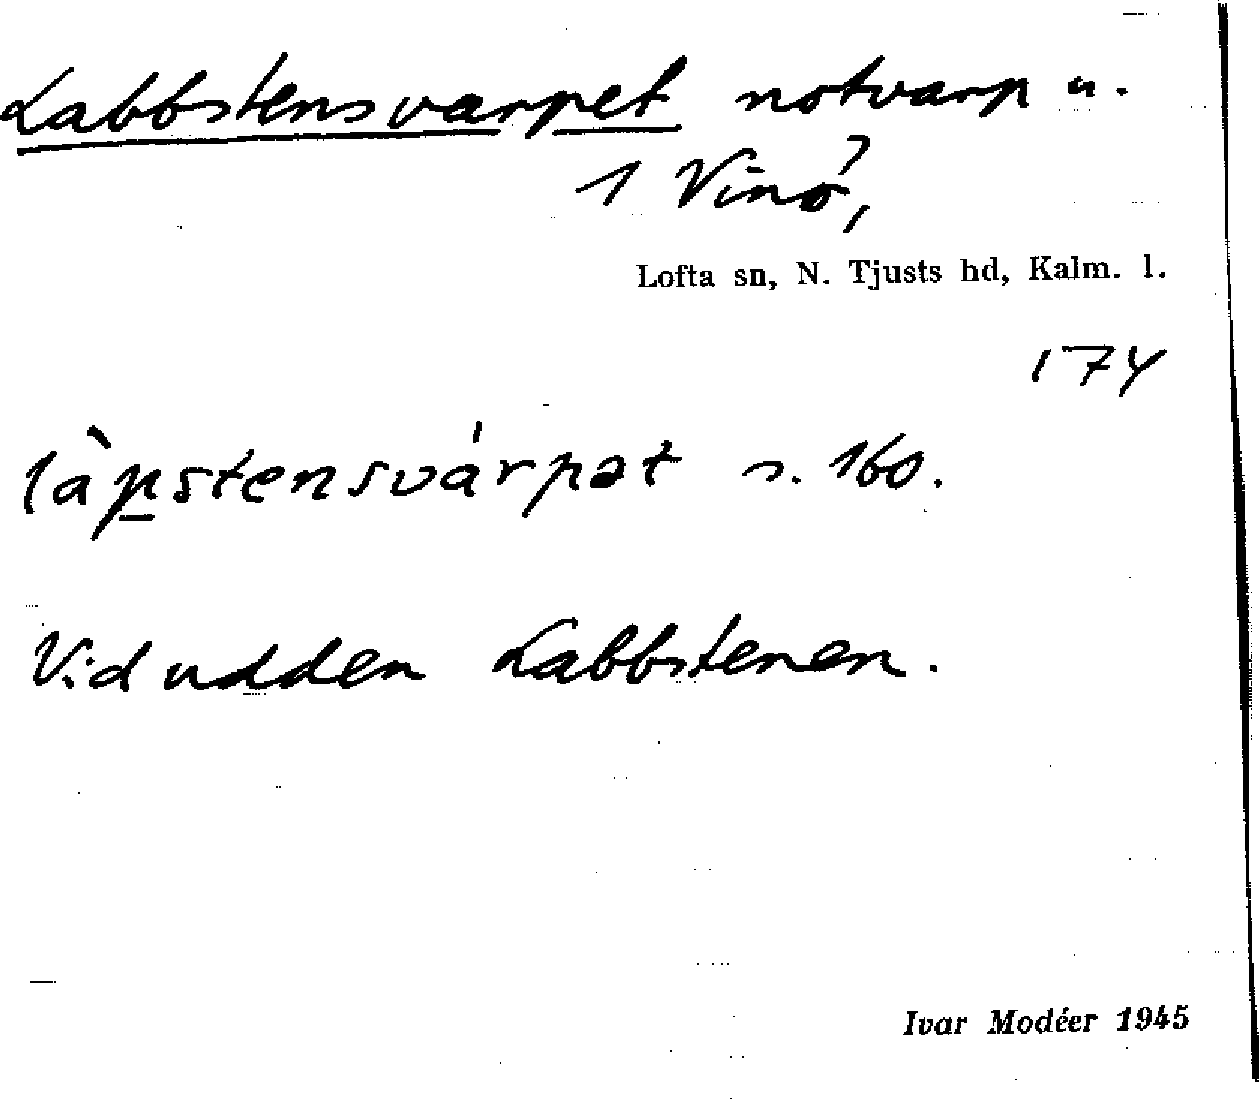 Labbstensvarpet notvarp u.
1 Vinö,
Lofta sn, N. Tjusts hd, Kalm. l.
174
làpstensvárpət s. 160.
Vid udden Labbstenen.
Ivar Modéer 1945